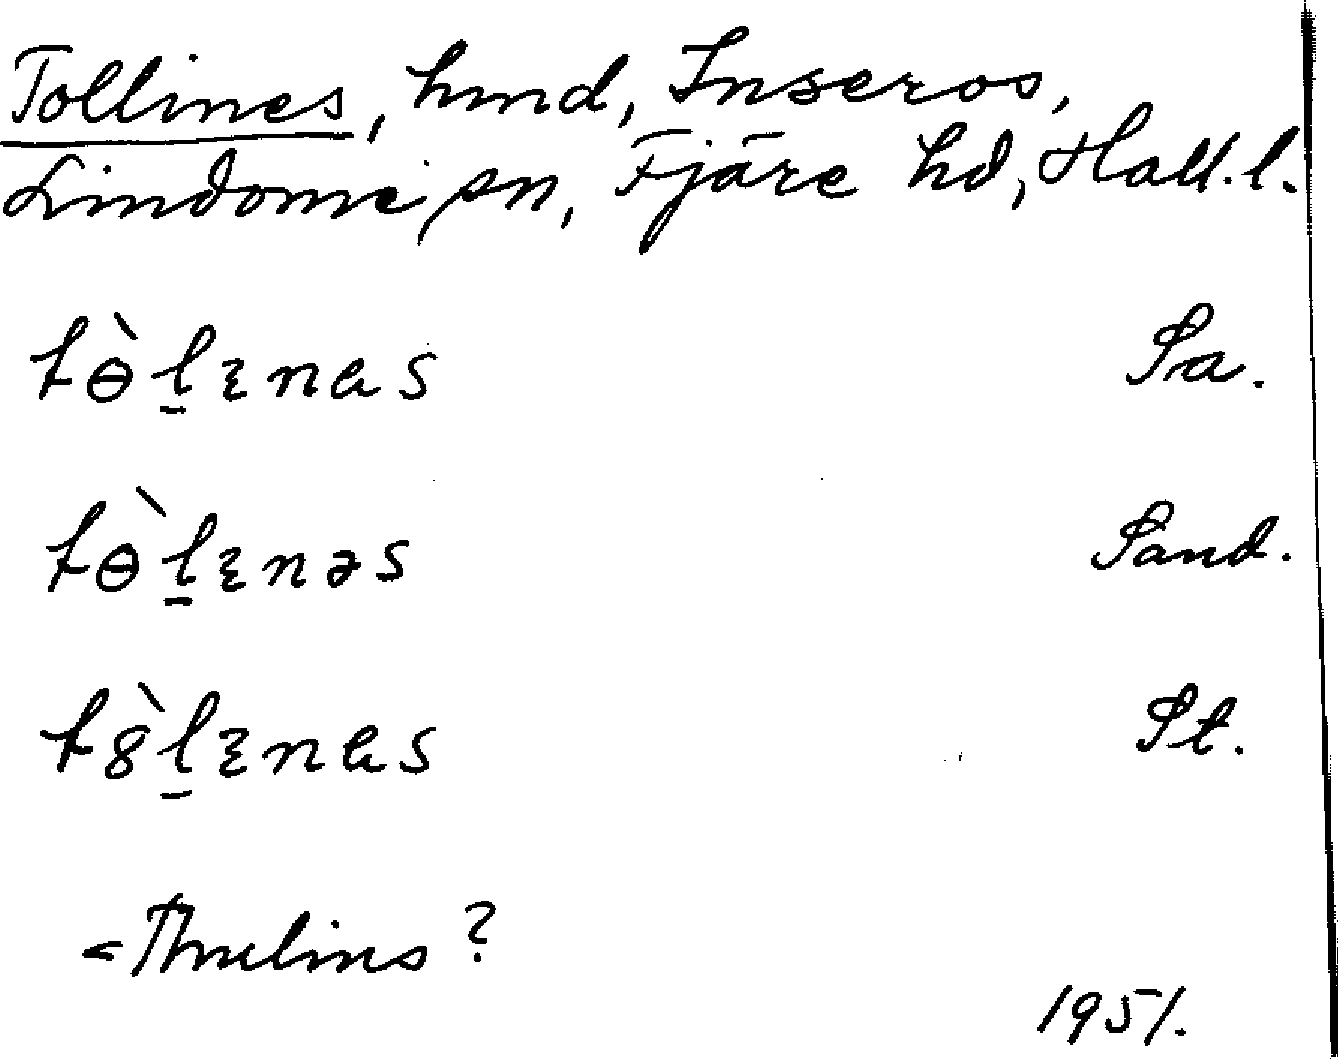 Tollines, hmd, Inseros,
Lindome sn, Fjäre hd, Hall. l.
tɵ̀l̠ɪnɐs Sa.
tɵ̀l̠ɪnəs Sand.
t8̀l̠ɪnɐs St.
< Thulins?
1951.